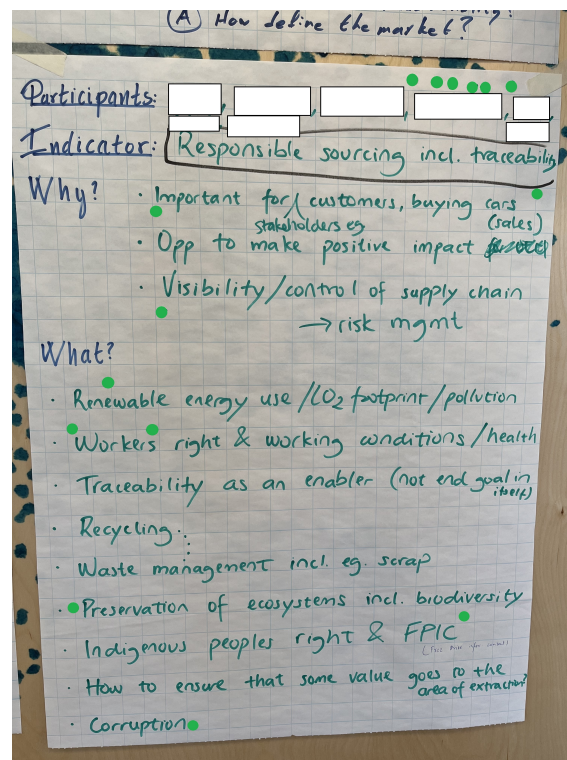 A How define the market?
Participants:
Indicator: Responsible sourcing incl. traceability
Why?
· Important for customers, buying cars (sales)
stakeholders eg
· Opp to make positive impact
· Visibility/control of supply chain
→ risk mgmt
What?
· Renewable energy use /CO2 footprint/pollution
· Workers right & working conditions/health
· Traceability as an enabler (not end goal in
itself)
· Recycling
· Waste management incl. eg. scrap
· Preservation of ecosystems incl. biodiversity
· Indigenous peoples right & FPIC
· How to ensure that some value goes to the
area of extraction?
· Corruption